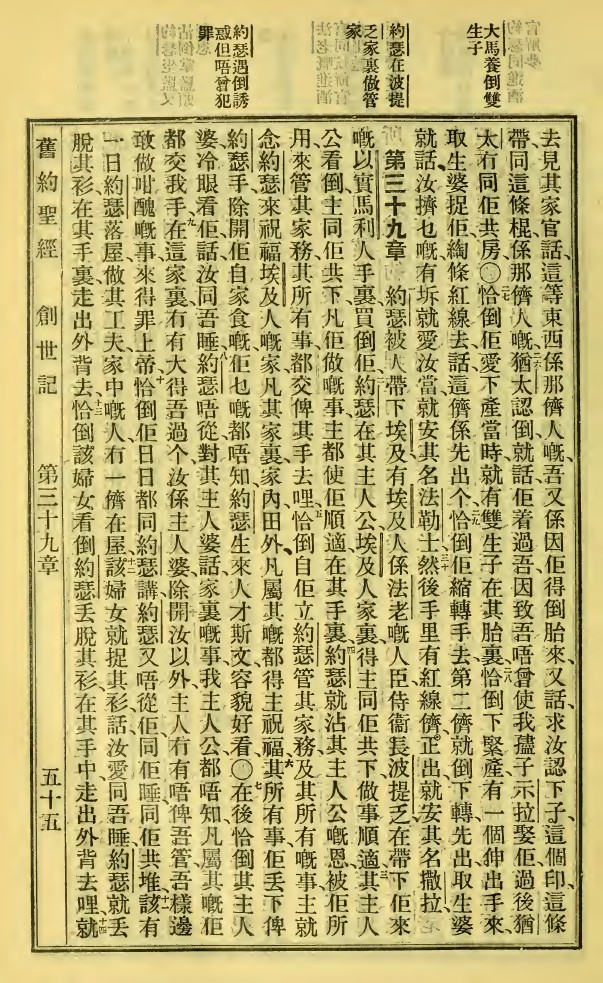 大馬養倒雙
生子
約瑟在波提
乏家裏做管
家
約瑟遇倒誘
惑但唔曾犯
罪
去見其家官話、這等東西係那儕人嘅、吾又係因佢得倒胎來、又話、求汝認下子、這個印、這條
帶、同這條棍、係那儕人嘅、二六猶太認倒、就話、佢着過吾、因致吾唔曾使我孻子示拉娶佢、過後猶
太冇同佢共房、〇二七恰倒佢愛下產當時、就有雙生子在其胎裏、二八恰倒下緊產、有一個伸出手來、
取生婆捉佢綯條紅線去、話這儕係先出个、二九恰倒佢縮轉手去、第二儕就倒下轉先出、取生婆
就話、汝擠乜嘅有坼就愛汝當、就安其名法勒士、三十然後手里有紅線儕正出、就安其名撒拉、
第三十九章 約瑟被人帶下埃及、有埃及人係法老嘅人臣、侍衞長波提乏、在帶下佢來
嘅以實馬利人手裏買倒佢、約瑟在其主人公埃及人家裏、得主同佢共下、做事順適、三其主人
公看倒主同佢共下、凡佢做嘅事、主都使佢順適在其手裏、四約瑟就沾其主人公嘅恩、被佢所
用來管其家務、其所有事、都交俾其手去哩、五恰倒自佢立約瑟管其家務、及其所有嘅事、主就
念約瑟來祝福埃及人嘅家、凡其家裏、家內田外、凡屬其嘅、都得主祝福、六其所有事、佢丟下俾
約瑟手、除開佢自家食嘅、佢乜嘅都唔知、約瑟生來人才斯文、容貌好看、〇七在後恰倒其主人
婆冷眼看佢、話汝同吾睡、八約瑟唔從、對其主人婆話、家裏嘅事、我主人公都唔知、凡屬其嘅、佢
都交我手、九在這家裏、冇有大得吾過个、汝係主人婆、除開汝以外、主人冇有唔俾吾管、吾樣邊
敢做咁醜嘅事、來得罪上帝、十恰倒佢日日都同約瑟講、約瑟又唔從佢、同佢睡、同佢共堆、十一該有
一日、約瑟落屋做其工夫、家中嘅人、冇一儕在屋、十二該婦女就捉其衫、話汝愛同吾睡、約瑟就丟
脫其衫在其手裏、走出外背去、十三恰倒該婦女看倒約瑟丟脫其衫在其手中、走出外背去哩、十四就
舊約聖經 創世記 第三十九章 五十五